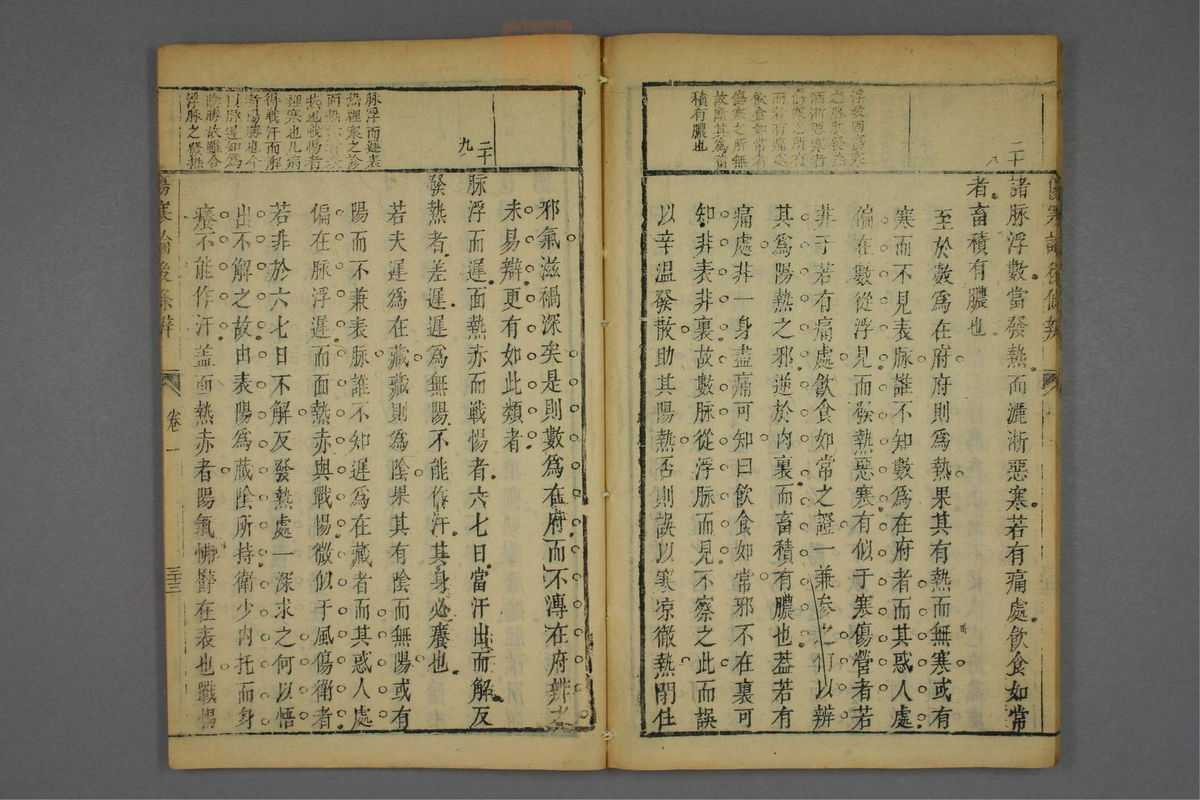 二十八
諸脉浮數當發熱而灑淅惡寒若有痛處飲食如常
者畜積有膿也
至於數爲在府府則爲熱果其有熱而無寒或有
寒而不見表脉誰不知數爲在府者而其惑人處
偏在數從浮見而發熱惡寒有似于寒傷營者若
非于若有痛處飲食如常之證一兼參之何以辨
其爲陽熱之邪逆於肉裏而畜積有膿也葢若有
痛處非一身盡痛可知曰飲食如常邪不在裏可
知非表非裏故數脉從浮脉而見不察之此而誤
以辛溫發散助其陽熱否則誤以寒凉徹熱閉住
積有膿也
邪氣滋禍深矣是則數爲在府而不漙在府辨者
未易辯更有如此類者
二十九
脉浮而遲面熱赤而戰惕者六七日當汗出而解反
發熱者差遲遲爲無陽不能作汗其身必癢也
若夫遲爲在藏藏則爲陰果其有陰而無陽或有
陽而不兼表脉誰不知遲爲在藏者而其惑人處
偏在脉浮遲而面熱赤與戰惕微似于風傷衛者
若非於六七日不解反發熱處一深求之何以悟
出不解之故由表陽爲藏陰所持衛少內托而身
癢不能作汗葢面熱赤者陽氣怫鬱在表也戰惕
脉浮而遲表
熱裡寒之診
裡寒也凡病
得戰汗而解
者陽勝也今
傷寒論後條辨
卷一
三十三